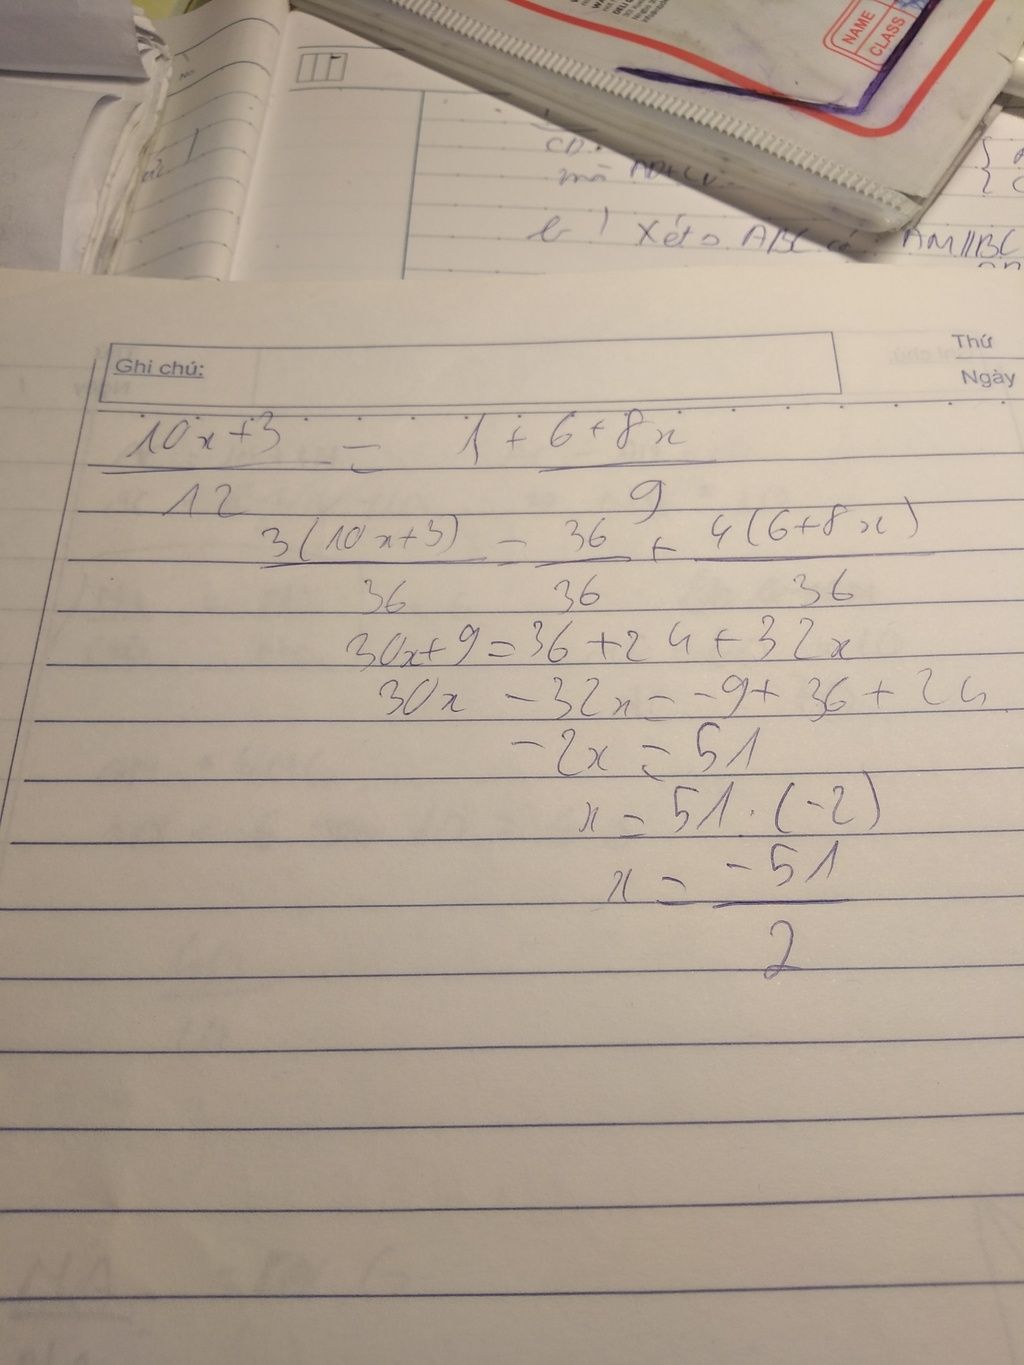 NAME
CLASS
CD
b) Xét △ ABC có: AM//BC
Ghi chú:
Thứ
Ngày
10x+3 / 12 = 1 + 6+8x / 9
3(10x+3) / 36 = 36 / 36 + 4(6+8x) / 36
30x+9=36+24+32x
30x -32x=-9+36+24
-2x=51
x=51.(-2)
x= -51 / 2